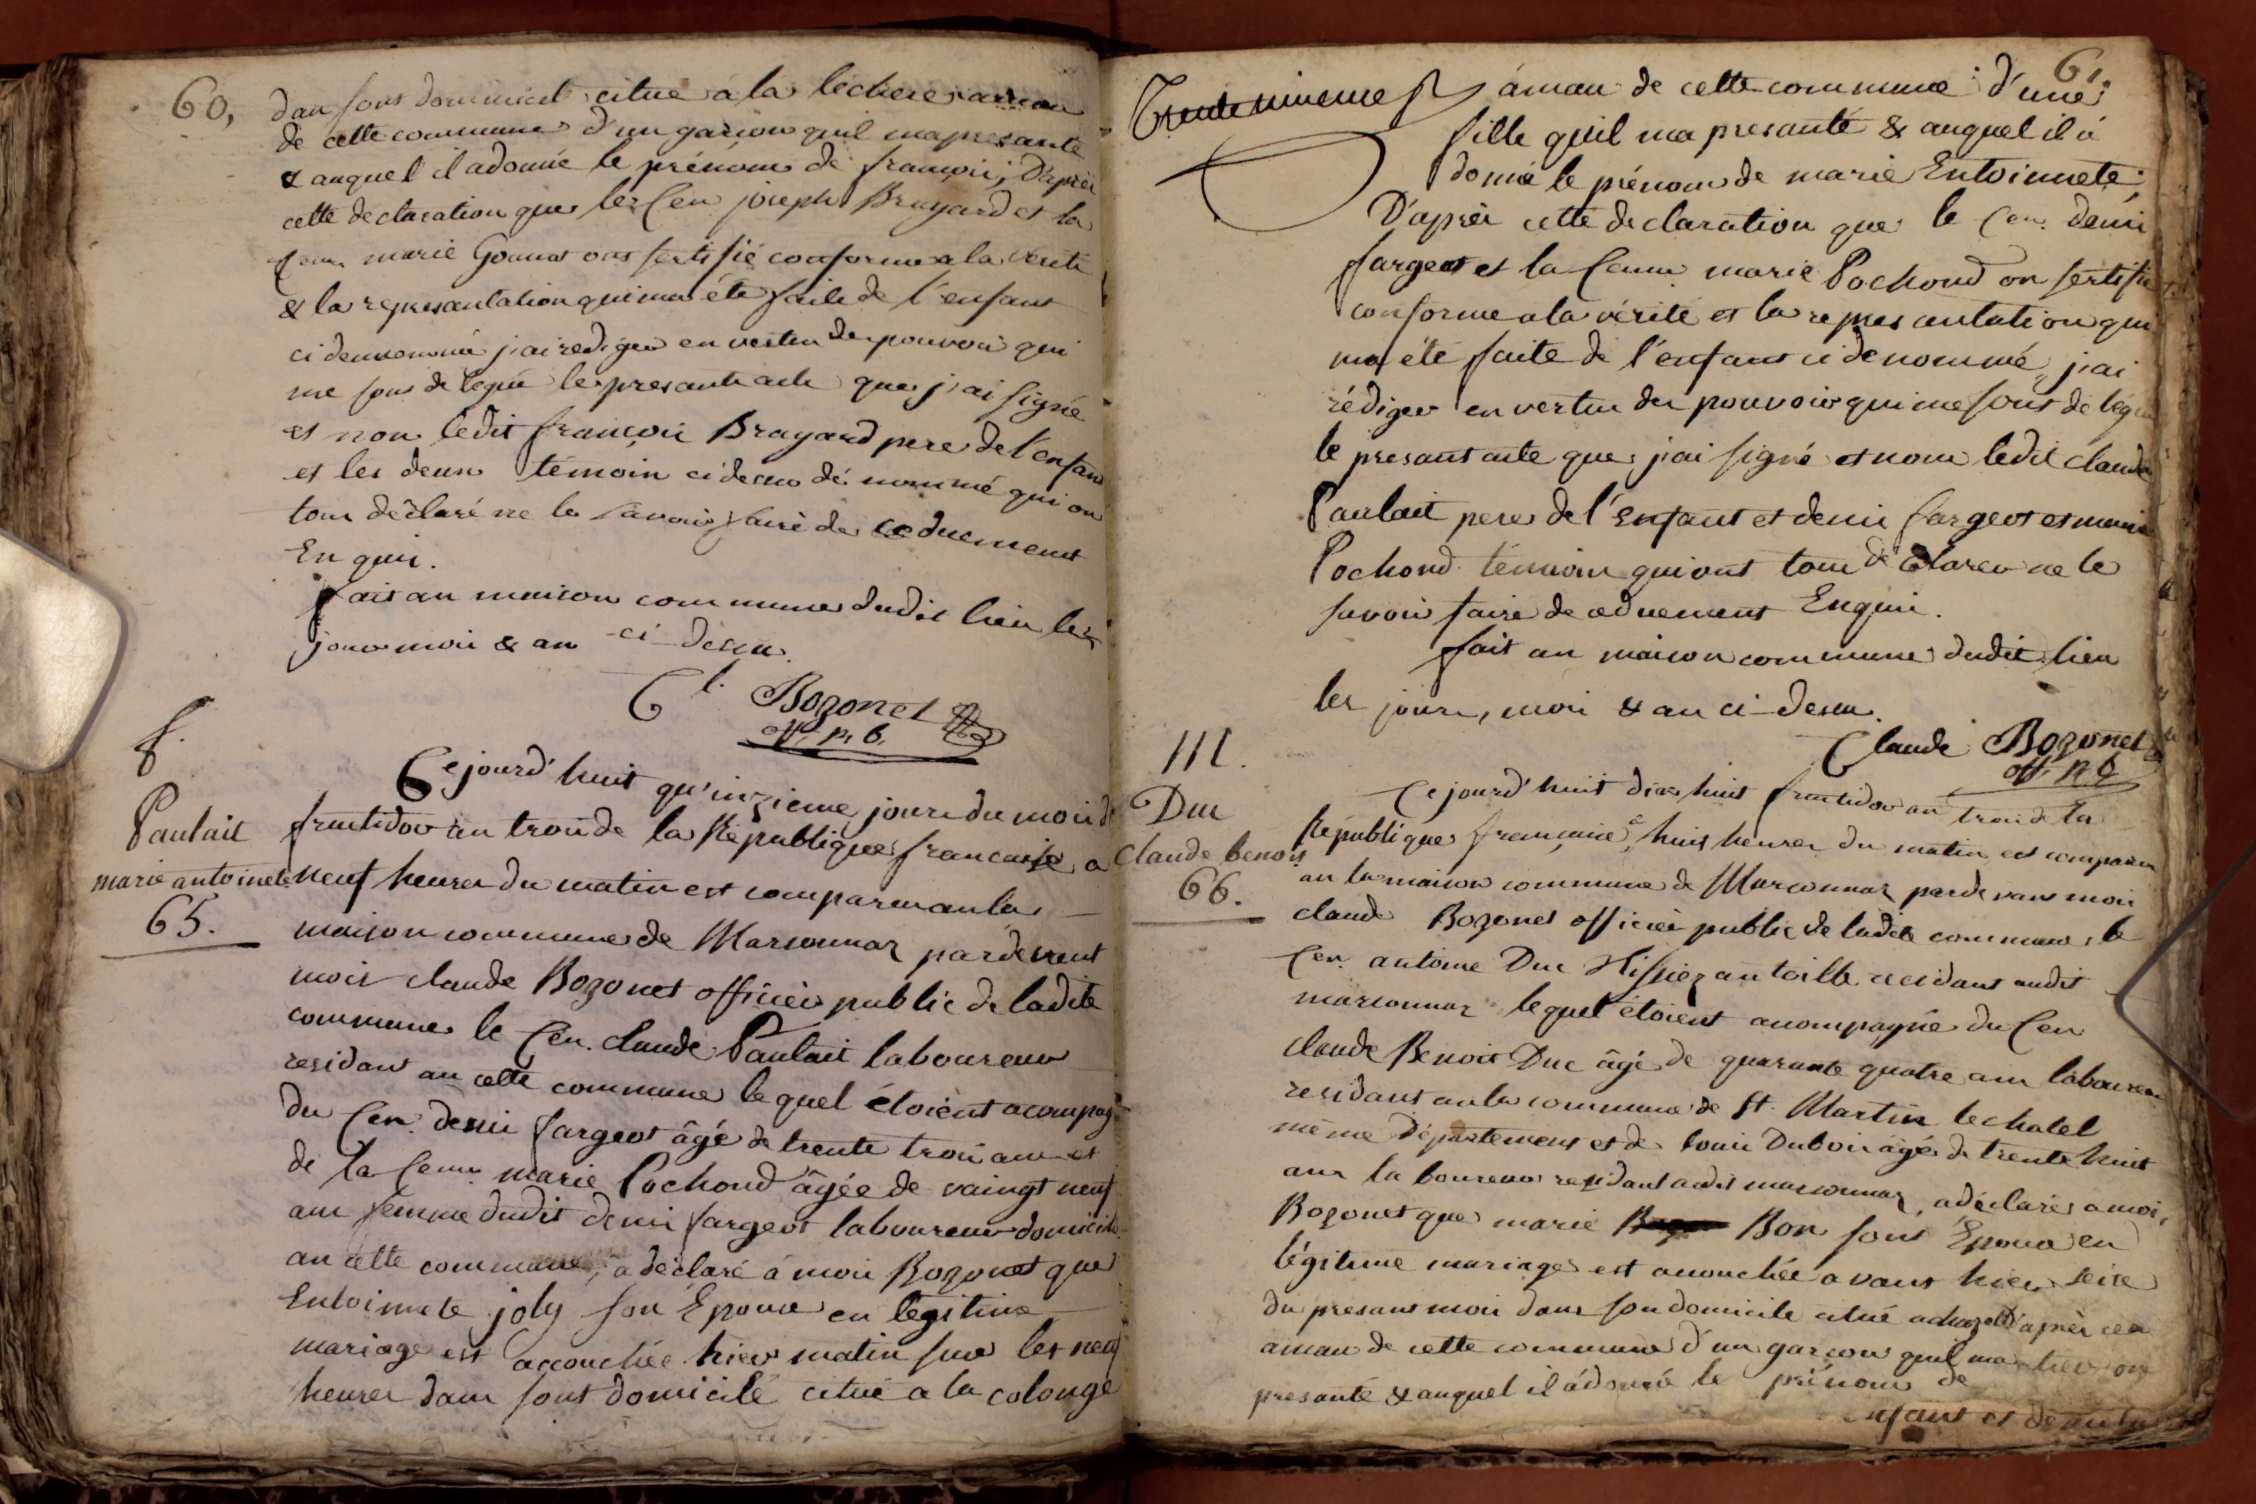 60,
dan sont domicil citue a la lechere aman
de cette commune d'un garson quil ma presante
& auquel il adonné le prénom de françois, D'aprés
cette declaration que les Cen joseph Brayard et la
marie Gounat ont sertifié conforme a la vérité
& la representation qui ma été faite de l'enfant
ci denonomé j'ai rediger en vertu des pouvoir qui
me sont delegué le presante acte que j'ai signé
et non ledit françois Brayard pere de l'enfant
et les deux témoin ci desus dé nommé qui on
tous déclaré ne le savoir faire de ce duement
En quis.
fait an maison commune dudit lieu les
jour moi & an ci-desu.
Cl. Bozonet
off. p. b.
f.
Paulait
marie antoinete
65.
Ce jourd'huit quinzieme jour du moi de
frutidor an trois de la République francaise a
neuf heures du matin est comparu an la
maison commune de Marsonnaz pardevent
moi claude Bozonet officier public de ladite
commune le Cen. claude Paulait laboureur
residant an cette commune lequel étoient acompag
du Cen. denis fargeot âgé de trente trois ans et
de la Cenne marie Pochond âgée de vaingt neuf
ans femme dudit denis fargeot laboureur domicilié
an cette commune, a déclaré á moi Bozonet que
Entoinnete joly son Epouse en légitime
mariage est accouchée hier matin sur les neuf
heures dans sont domicilé citué a la colonge
61.
Trente uniéme f. áman de cette commune d'une
fille quil ma presanté & auquel il á
donné le prénom de marie Entoinnete.
D'aprés cette declaration que le Cen. denis
fargeot et la Cenne marie Pochond on sertifié
conforme a la vérité et la representation qui
ma été faite de l'enfant ci denommé, j'ai
rédiger en vertu des pouvoir qui me sont délégué
le presant acte que j'ai signé et non ledit claude
Paulait pere de l'Enfant et denis fargeot et marie
Pochond témoin qui ont tous déclarer ne le
savoir faire de ce duement Enquis.
fait an maison commune dudit lieu
les jour, moi & an ci-desu.
Claude Bozonet
off. p. b.
M.
Duc
Claude benoit
66.
Ce jourd'huit dix huit frutidor an trois de la
République française á huit heures du matin est comparu
an la maison commune de Marsonnaz pardevant moi
claude Bozonet officier public de ladite commune, le
Cen. antoine Duc Tissier an toille residant audit
marsonnaz lequel étoient acompagné du Cen
claude Benoit Duc âgé de quarante quatre ans laboureur
residant an la commune de St. Martin le chatel
même Département et de louis Dubois âgé de trente huit
ans laboureur residant audit marsonnaz, a déclaré a moi,
Bozonet que marie Bon sont Epouse en
légitime mariage est acouchée avant hier seize
du presant moi dans son domicile citué a chazelle d'aprés ces
aman de cette commune d'un garçon quil ma
presanté & auquel il á donné le prénom de
enfant et